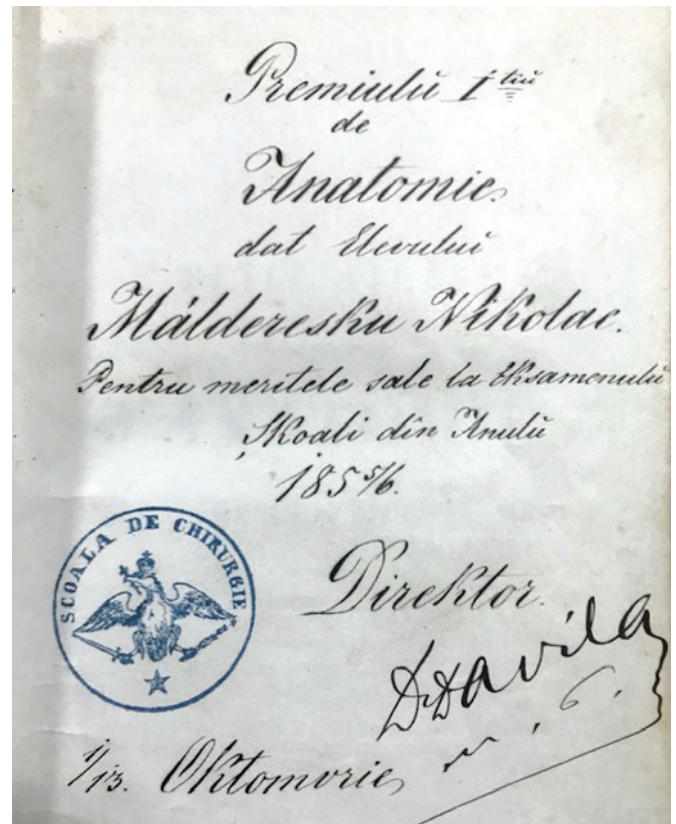 Premiulŭ I tiŭ
de
Anatomie
dat Elevului
Málderesku Nikolae.
Pentru meritele sale la Eksamenulŭ
Șkoali din Anulŭ
185 5/6.
SCOALA DE CHIRURGIE
Direktor.
Dr Davila
1/13. Oktomvrie